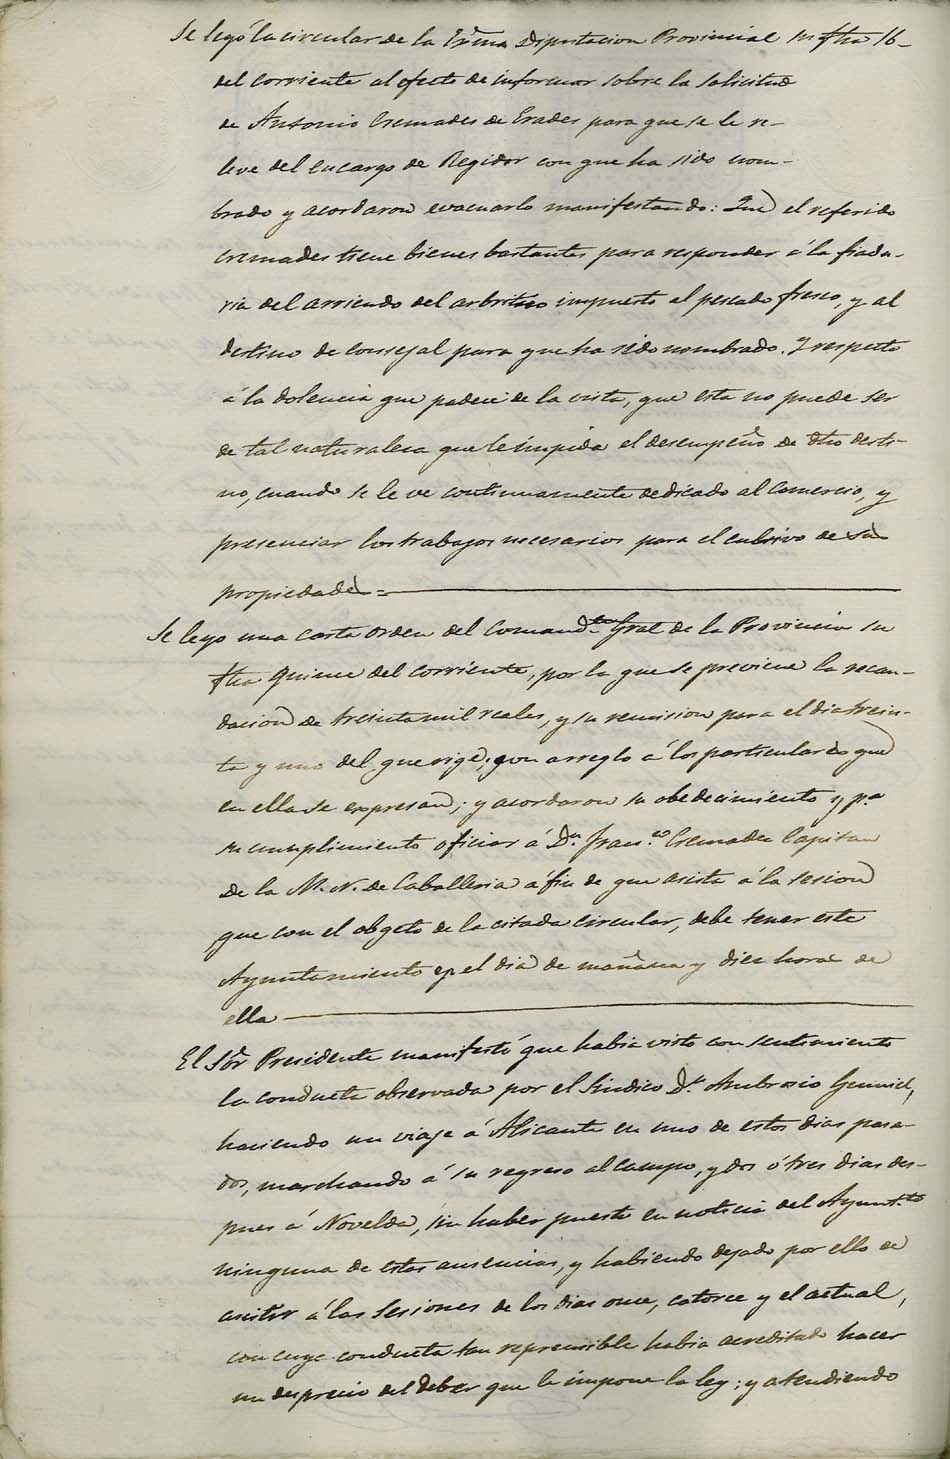 Se leyó la circular de la Exma Diputacion Provincial su fha 16
del corriente al efecto de informar sobre la solicitud
de Antonio Cremades de Erades para que se le re-
leve del encargo de Regidor con que ha sido nom-
brado y acordaron evacuarlo manifestando: Que el referido
Cremades tiene bienes bastantes para responder á la fiadu-
ria del arriendo del arbitrio impuesto al pescado fresco, y al
destino de consejal para que ha sido nombrado. Y respecto
á la dolencia que padece de la vista, que esta no puede ser
de tal naturaleza que le impida el desempeño de dho desti-
no, cuando se le ve continuamente dedicado al Comercio, y
presenciar los trabajos necesarios para el cultivo de su
propiedad =
Se leyo una carta orden del Comandte Gral de la Provincia su
fha quince del corriente, por la que se previene la recau-
dacion de treinta mil reales, y su remision para el dia trein-
ta y uno del que rige, con arreglo á los particulares que
en ella se expresan; y acordaron su obedecimiento y pa
su cumplimiento oficiar á Dn. Franco Cremades Capitan
de la M. N. de Caballeria á fin de que asista á la sesion
que con el obgeto de la citada circular, debe tener este
Ayuntamiento en el dia de mañana y diez horas de
ella
El Sor Presidente manifestó que habia visto con sentimiento
la conducta observada por el Sindico Dn. Ambrosio
haciendo un viaje á Alicante en uno de estos dias pasa-
dos, marchando á su regreso al campo, y dos ó tres dias des-
pues á Novelda, sin haber puesto en noticia del Ayuntto
ninguna de estas ausencias, y habiendo dejado por ello de
asistir á las Sesiones de los dias once, catorce y el actual,
con cuya conducta tan reprensible habia acreditado hacer
un desprecio del deber que le impone la ley; y atendiendo